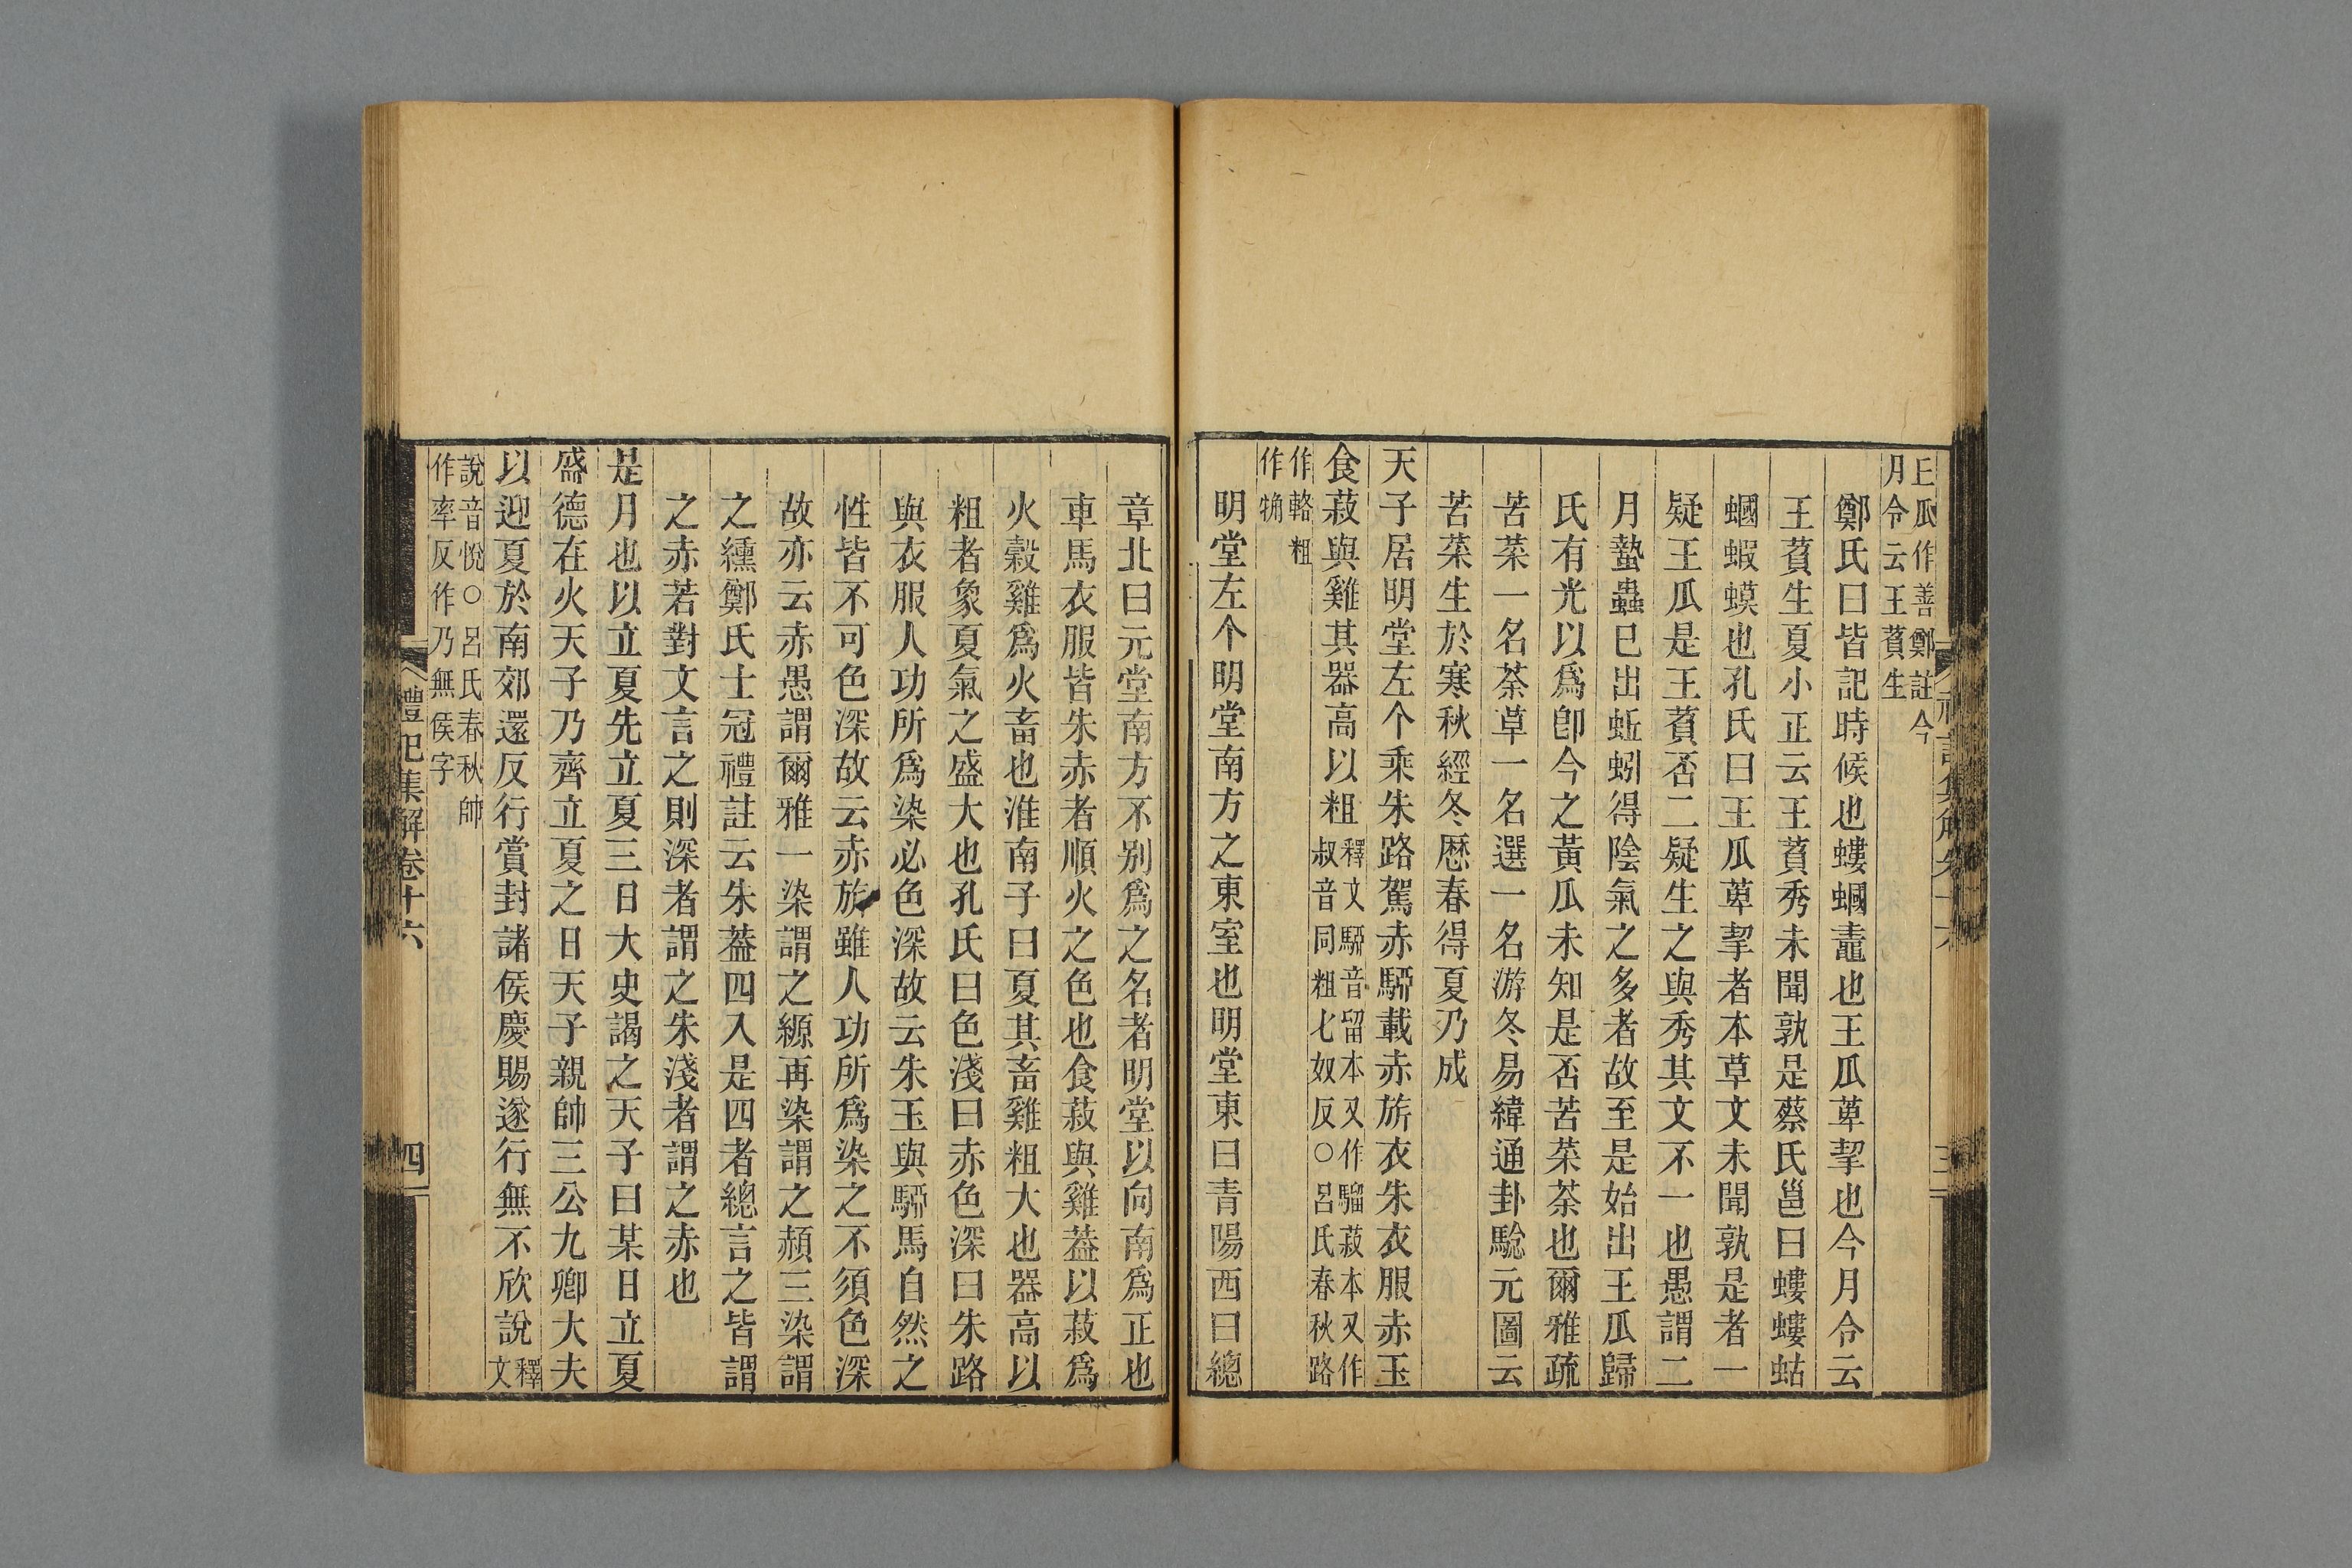 王瓜作善鄭註今
月令云王萯生
鄭氏曰皆記時候也螻蟈䵷也王瓜萆挈也今月令云
王萯生夏小正云王萯秀未聞孰是蔡氏邕曰螻螻蛄
蟈蝦蟆也孔氏曰王瓜萆挈者本草文未聞孰是者一
疑王瓜是王萯否二疑生之與秀其文不一也愚謂二
月蟄蟲巳出蚯蚓得陰氣之多者故至是始出王瓜歸
氏有光以爲卽今之黃瓜未知是否苦菜荼也爾雅疏
苦菜一名荼草一名選一名游冬易緯通卦騐元圖云
苦菜生於寒秋經冬厯春得夏乃成
天子居明堂左个乘朱路駕赤騮載赤旂衣朱衣服赤玉
食菽與雞其器高以粗
釋文騮音留本又作駵菽本又作
叔音同粗七奴反○呂氏春秋路
作輅粗
作觕
明堂左个明堂南方之東室也明堂東曰青陽西曰總
章北曰元堂南方不别爲之名者明堂以向南爲正也
車馬衣服皆朱赤者順火之色也食菽與雞葢以菽爲
火穀雞爲火畜也淮南子曰夏其畜雞粗大也器高以
粗者象夏氣之盛大也孔氏曰色淺曰赤色深曰朱路
與衣服人功所爲染必色深故云朱玉與騮馬自然之
性皆不可色深故云赤旂雖人功所爲染之不須色深
故亦云赤愚謂爾雅一染謂之縓再染謂之赬三染謂
之纁鄭氏士冠禮註云朱葢四入是四者總言之皆謂
之赤若對文言之則深者謂之朱淺者謂之赤也
是月也以立夏先立夏三日大史謁之天子曰某日立夏
盛德在火天子乃齊立夏之日天子親帥三公九卿大夫
以迎夏於南郊還反行賞封諸侯慶賜遂行無不欣說
釋
文
說音悅○呂氏春秋帥
作率反作乃無侯字
禮記集解卷十六
四